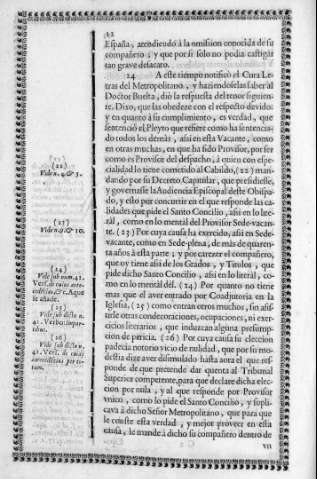 12
España, atendiendo à la omission conocida de su
compañero; y que por si solo no podia castigar
tan grave desacato.
24 A este tiempo notificò el Cura Le-
tras del Metropolitano, y haziendoselas saber al
Doctor Buelta, diò la respuesta del tenor siguien-
te. Dixo, que las obedece con el respecto devido:
y en quanto à su cumplimiento, es verdad, que
sentenciò el Pleyto que refiere como ha sentencia-
do todos los demàs, assi en esta Vacante, como
en otras muchas, en que ha sido Provisor, por ser
como es Provisor del despacho, à quien con espe-
cialidad lo tiene cometido al Cabildo, (22) man-
dando por su Decreto Capitular, que presidiesse,
y governasse la Audiencia Episcopal deste Obispa-
do, y esto por concurrir en el que responde las ca-
lidades que pide el Santo Concilio, assi en lo lite-
ral, como en lo mental del Provisor Sede-vacan-
te. (23) Por cuya causa ha exercido, assi en Sede-
vacante, como en Sede-plena, de mas de quaren-
ta años à esta parte; y por carecer el compañero,
que oy tiene assi de los Grados, y Titulos, que
pide dicho Santo Concilio, assi en lo literal, co-
mo en lo mental del. (24) Por quanto no tiene
mas que el aver entrado por Coadjutoria en la
Iglesia, (25) como entran otros muchos, sin assis-
tirle otras condecoraciones, ocupaciones, ni exer-
cicios literarios, que induzcan alguna presump-
cion de pericia. (26) Por cuya causa su eleccion
padecia notorio vicio de nulidad, que por su mo-
destia dize aver disimulado hasta aora el que res-
ponde de que pretende dar quenta al Tribunal
Superior competente, para que declare dicha elec-
cion por nula, y al que responde por Provisor
vnico, como lo pide el Santo Concilio, y supli-
cava à dicho Señor Metropolitano, que para que
le conste esta verdad, y mejor proveer en esta
causa, le mande à dicho su compañero dentro de
vn
(22)
Vide n. 4. & 5.
(23)
Vide n. 9. & 10.
(24)
Vide sub num. 41.
Vers.
&c. Aqui
se añade.
(25)
Vide sub dicto n.
41. Verbo
(26)
Vide sub dicto n.
41. Vers.